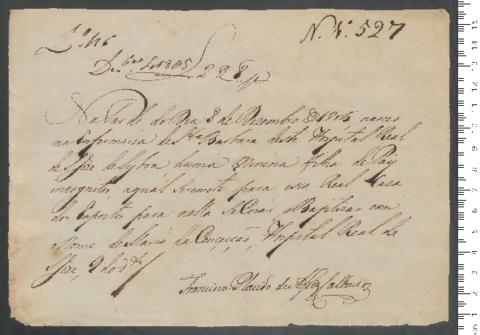 Lº 116
N. Nº. 527
Dezbro 9 1805
228
Na tarde do Dia 8 de Dezembro de 1805 nasceo
na Enfermaria de Sta Barbara deste Hospital Real
de S. Joze de Lxbôa, huma Menina filha de Pay
incognito, a qual Se remete para essa Real Caza
dos Expostos para nella Se Criar, e Baptizar com
o nome de Maria da Conceição, Hospital Real de
S. Joze, 9 do do
Francisco Placido de